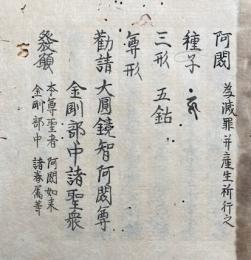 阿閦 為滅罪并産生祈行之
種子
三形 五鈷
尊形
勧請 大圓鏡智阿閦尊
金剛部中諸聖衆
發願 本尊聖者 阿閦如来
金剛部中 諸眷属等